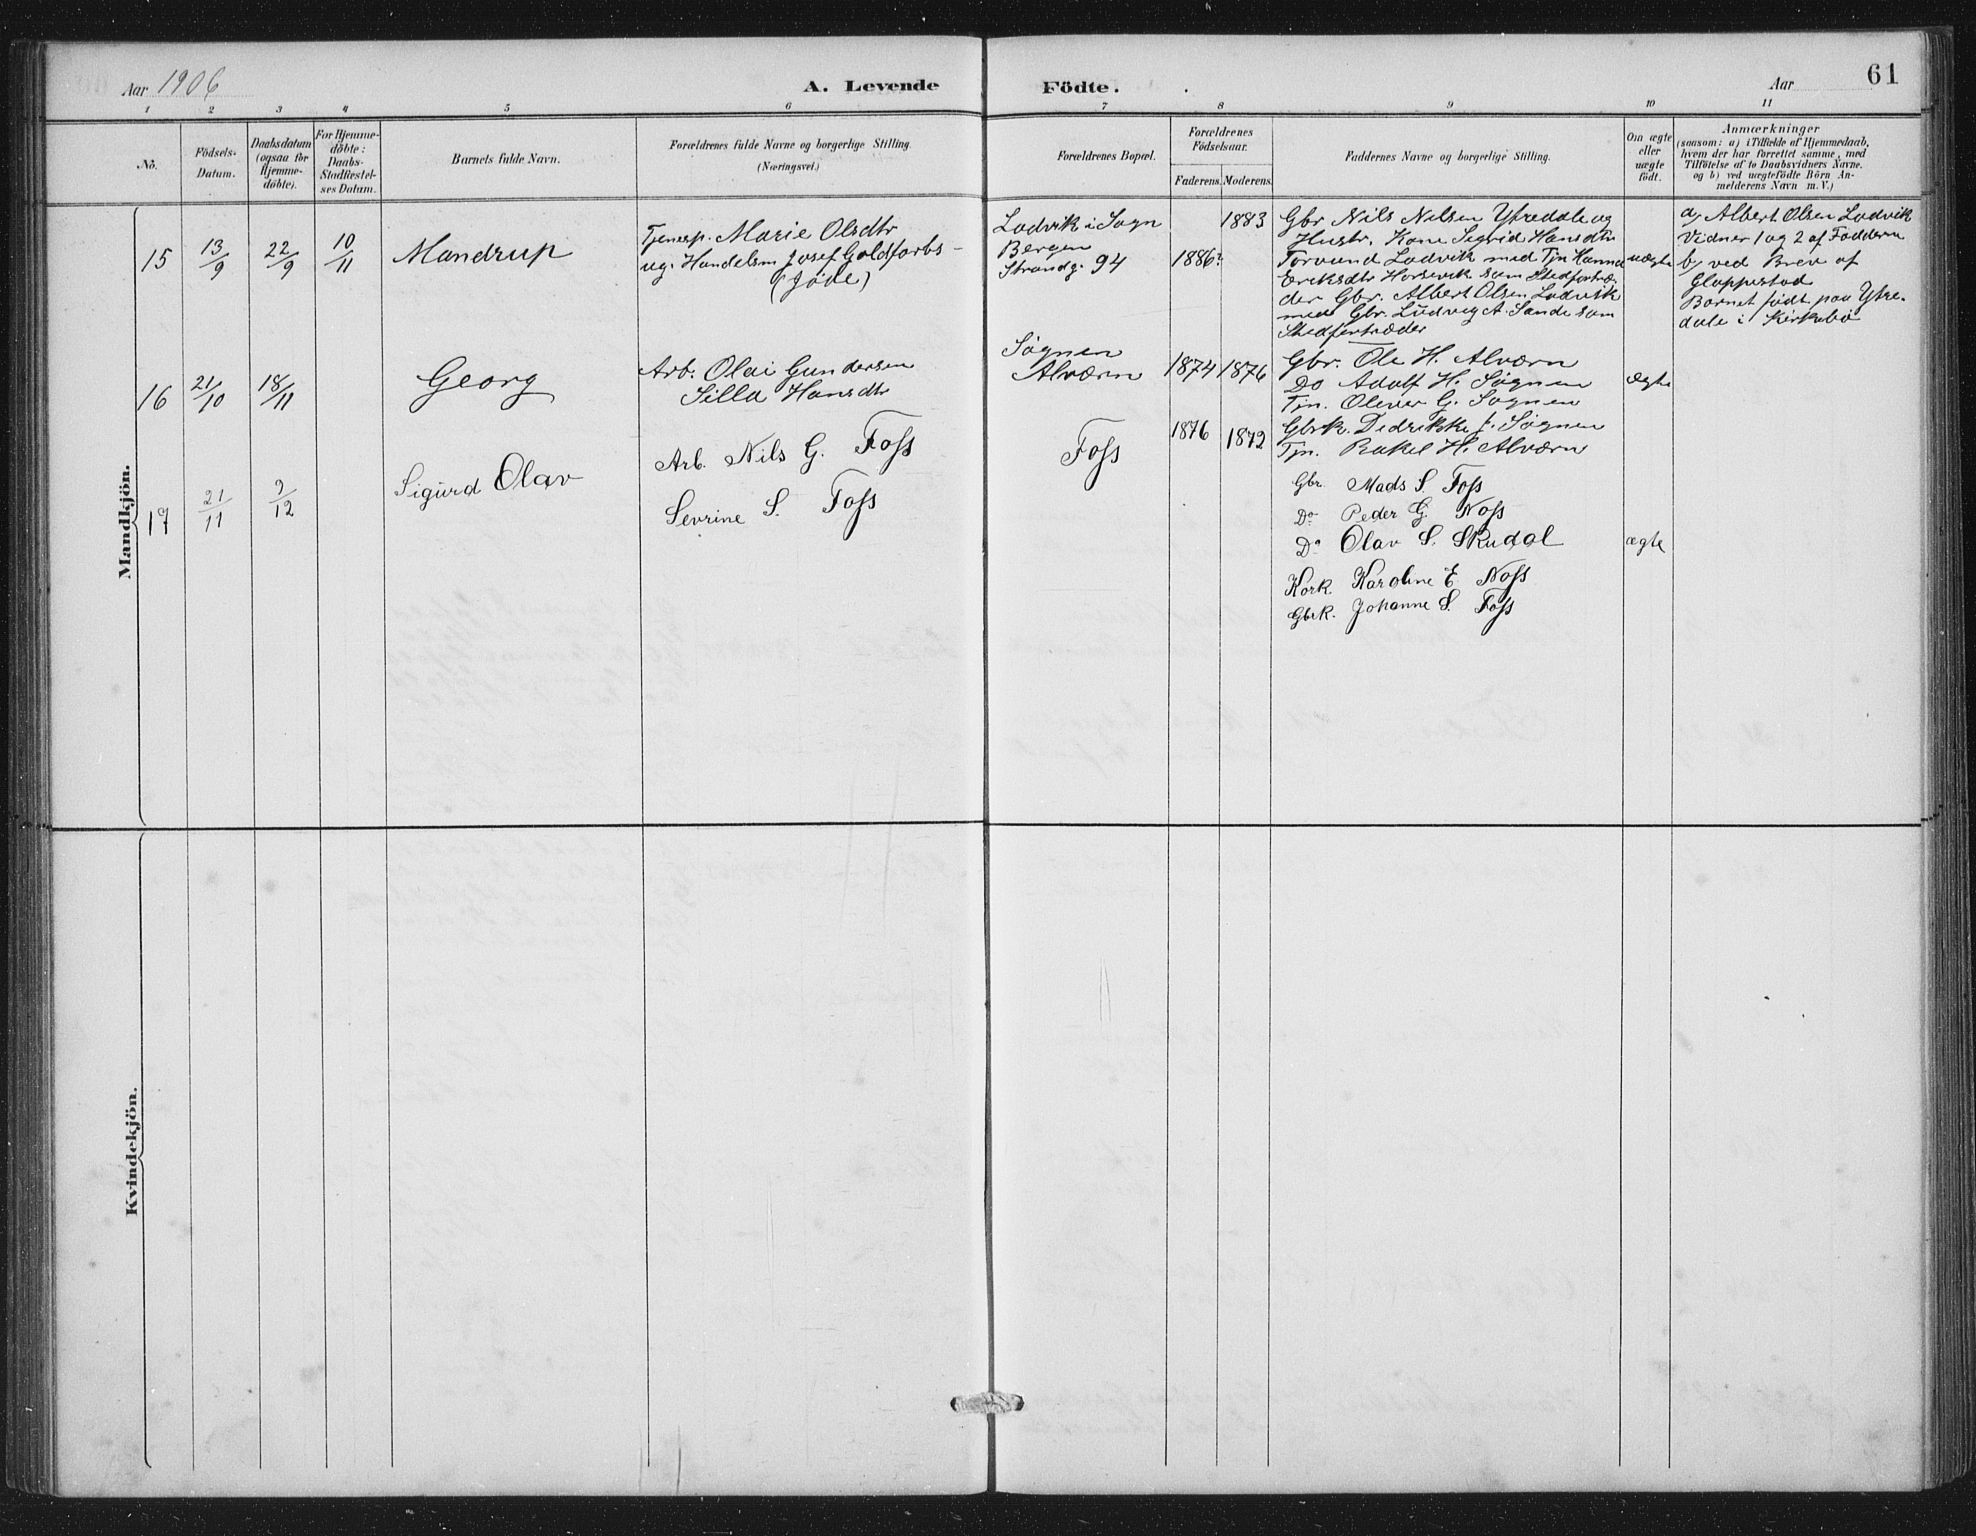 Aar 1906
A. Levende Födte.
Aar
61
1 2 3 4 5 6 7 8 9 10 11
No.
Födsels-Datum.
Daabsdatum (ogsaa for Hjemme-döbte).
For Hjemme-döbte: Daabs-Stadfæstel-ses Datum.
Barnets fulde Navn.
Forældrenes fulde Navne og borgerlige Stilling.
(Næringsvei.)
Forældrenes Bopæl.
Forældrenes Födselsaar.
Faderens. Moderens.
Faddernes Navne og borgerlige Stilling.
Om ægte eller uægte födt.
Anmærkninger
(saasom: a) i Tilfælde af Hjemmedaab,
hvem der har forrettet samme, med
Tilföielse af to Daabsvidners Navne.
og b) ved uægtefödte Börn An-
melderens Navn m. V.)
Mandkjön.
15 13/9 22/9 10/11 Mandrup
Tjenesp. Marie Olsdtr
ug. Handelsm Josef Goldfarbs-
(Jøde)
Ladvik i Sogn
Bergen
Strandg. 94
1886? 1883
Gbr Nils Nilsen Ytredale og
Hustr. Kone Sigrid Hansdtr
Torvund Ladvik med Tjn Hanna
Eriksdtr Horsevik som Stedfortræ-
der Gbr. Albert Olsen Ladvik
med Gbr. Ludvig A. Sande som
Stedfortræder
uægte
a, Albert Olsen Ladvik
Vidner 1 og 2 af Faddern
b, ved Brev af
Gloppestad
Barnet født paa Ytre-
dale i Kirkebø
16 21/10 18/11 Georg
Arb. Olai Gundersen
Silla Hansdtr
Søgnen
Alværn
1874 1876
Gbr. Ole H. Alværn
Do Adolf H. Søgnen
Tjn. Oliver G. Søgnen
Gbrk. Didrikke J. Søgnen
Tjn. Rakel H. Alværn
ægte
17 21/11 9/12 Sigurd Olav
Arb. Nils G. Foss
Sevrine S. Foss
Foss
1876 1872
Gbr. Mads S. Foss
Do Peder G. Noss
Do Olav S. Skudal
Kork Karoline E. Noss
Gbrk. Johanne S. Foss
ægte
Kvindekjön.